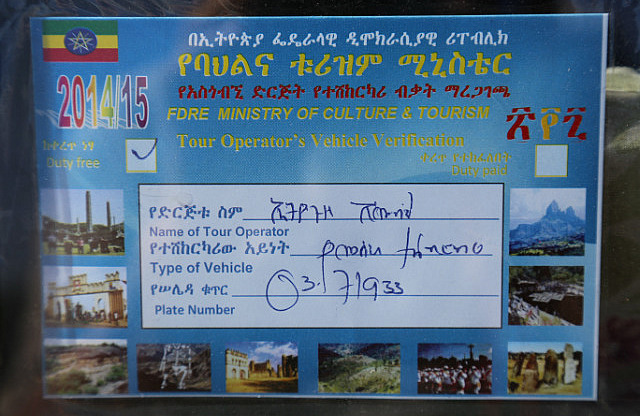 በኢትዮጵያ ፌዴራላዊ ዲሞክራሲያዊ ሪፐብሊክ
የባህልና ቱሪዝም ሚኒስቴር
የአስጎብኚ ድርጅት የተሽከርካሪ ብቃት ማረጋገጫ
2014/15
FDRE MINISTRY OF CULTURE & TOURISM
፳፻፯
Tour Operator's Vehicle Verification
ከቀረጥ ነፃ
Duty free
ቀረጥ የተከፈለበት
Duty paid
የድርጅቱ ስም
Name of Tour Operator
የተሽከርካሪው አይነት
Type of Vehicle
የሠሌዳ ቁጥር 03/71933
Plate Number